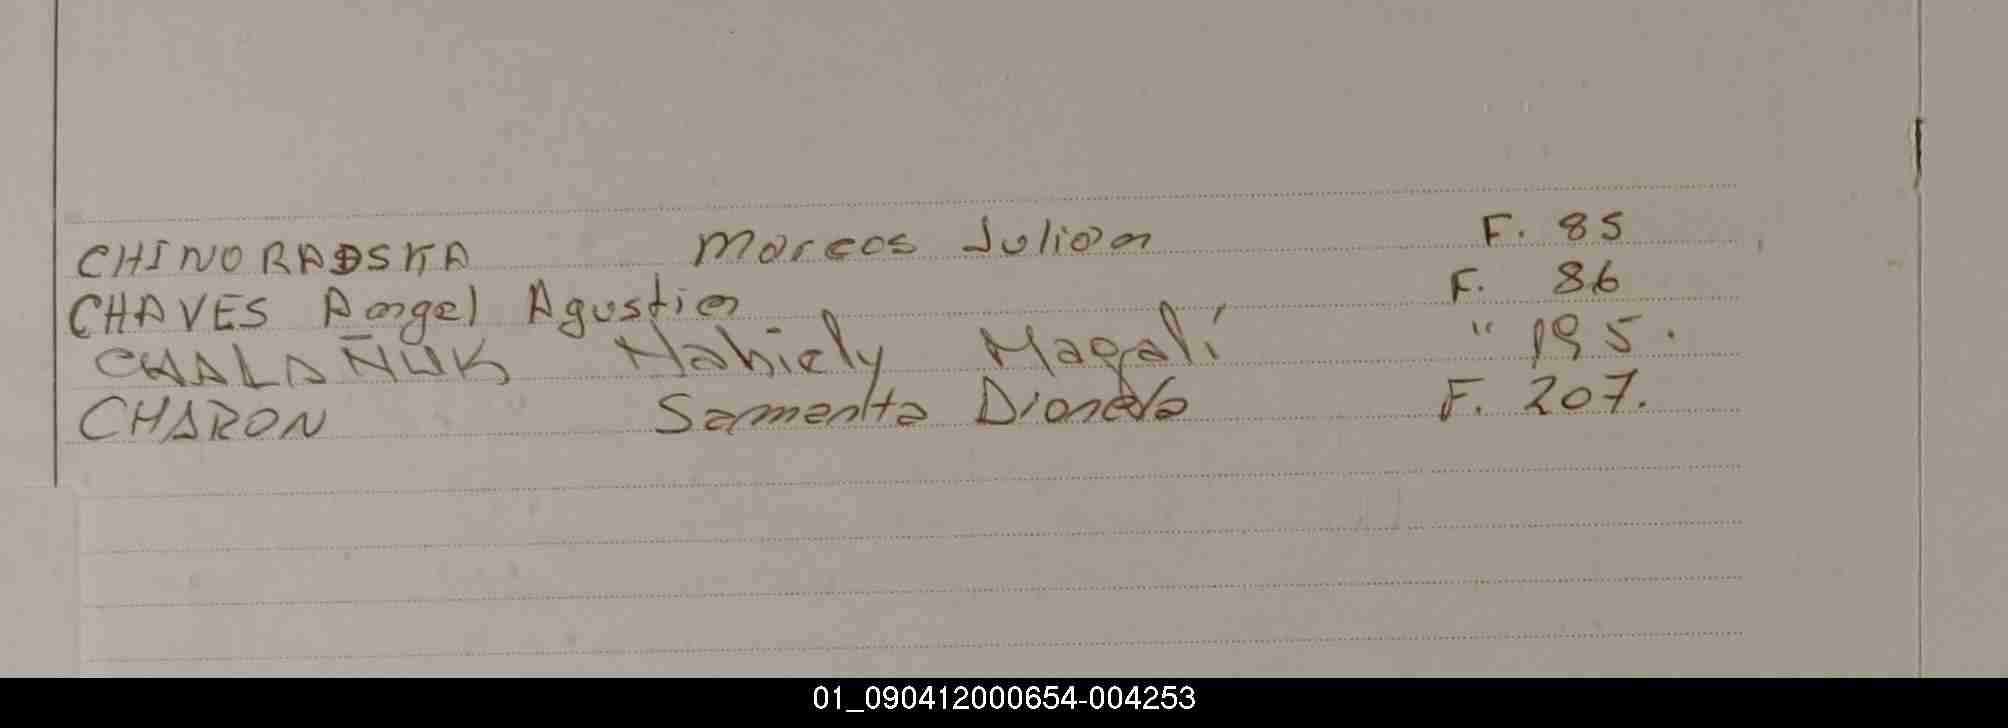 CHINORADSKA Marcos Julian F. 85
CHAVES Angel Agustin F. 86
CHALAÑUK Nahiely Magalí " 195.
CHARON Samanta Dionela F. 207.
01_090412000654-004253